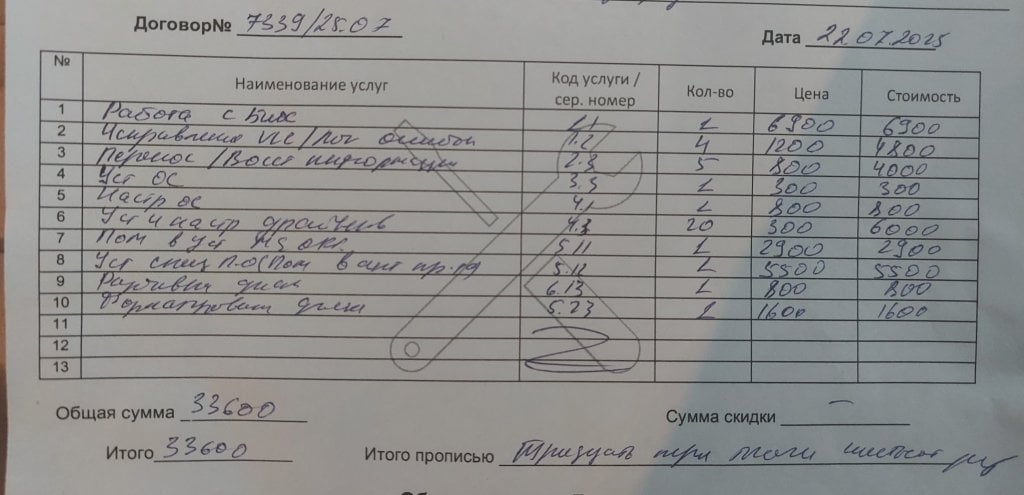 Договор№ 7339/25.07
Дата 22.07.2025
№ Наименование услуг Код услуги / сер. номер Кол-во Цена Стоимость
1 Работа с Биос 1.1 1 6900 6900
2 Исправление ИС/лог ошибок 1.2 4 1200 4800
3 Перенос/Восст информации 2.3 5 800 4000
4 Уст ОС 3.3 1 300 300
5 Настр ос 4.1 1 800 800
6 Уст и настр драйверов 4.3 20 300 6000
7 Пом в уст MS 5.11 1 2900 2900
8 Уст спец П.О(Пом в акт 5.12 1 5500 5500
9 диска 6.13 1 800 800
10 Форматирован диска 5.23 1 1600 1600
11
12
13
Общая сумма 33600
Сумма скидки –
Итого 33600
Итого прописью Тридцать три тысячи шестьсот руб